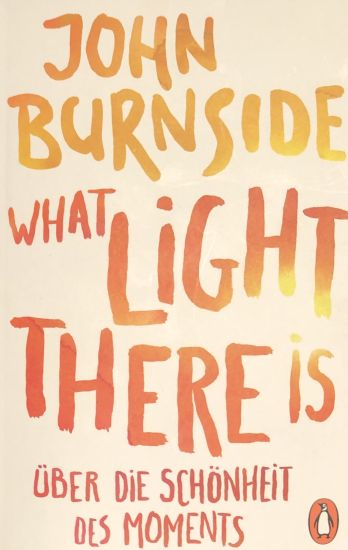 JOHN
BURNSIDE
WHAT LiGHT
THERE iS
ÜBER DiE SCHÖNHEiT
DES MOMENTS